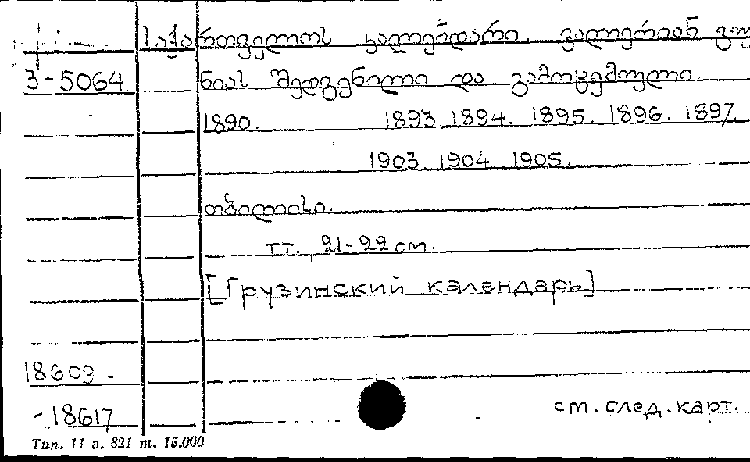 საქართველოს კალენდარი. ვალერიან გუ
З-5064 ნიას შედგენილი და გამოცემული.
1890. 1893 1894. 1895. 1896. 1897.
1903 1904 1905.
თბილისი.
тт. 21-22 см.
[Грузинский календарь]
18603 -
-18617 см. след. карт.
Тип. 11 з. 821 т. 15.000